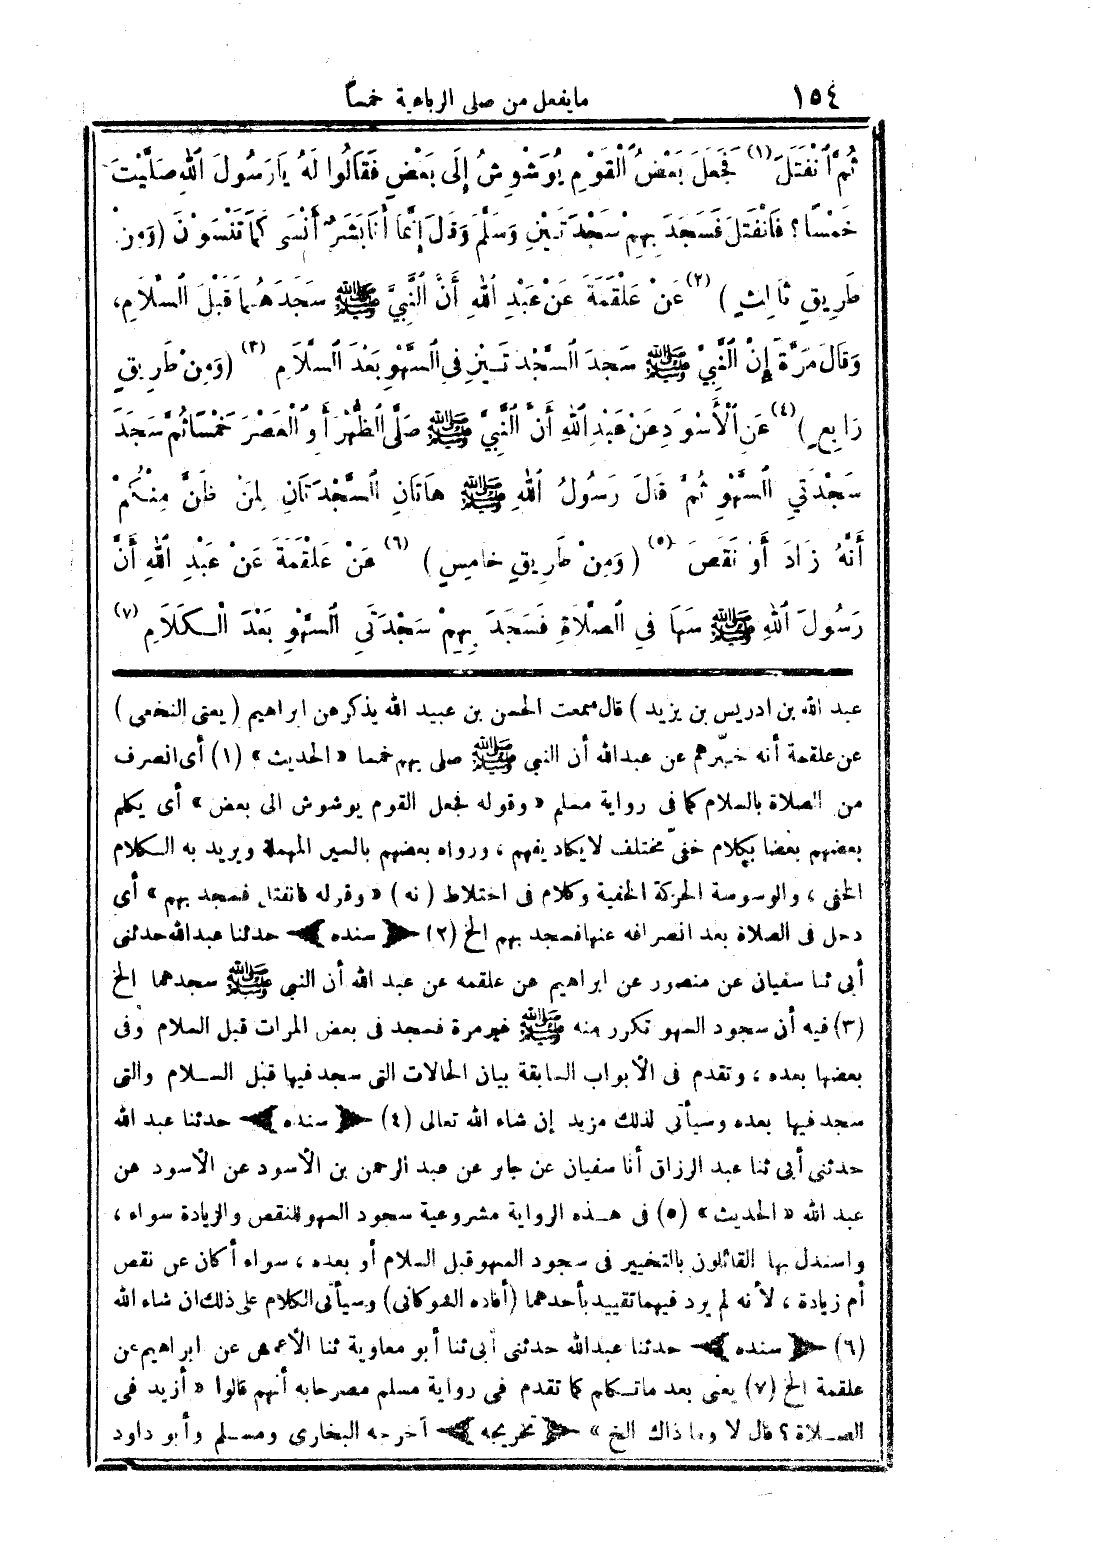 ١٥٤ ما يفعل من صلى الرباعية خمساً
ثُمَّ انْفَتَلَ (١) فَجَعَلَ بَعْضُ الْقَوْمِ يُوَشْوِشُ إِلَى بَعْضٍ فَقَالُوا لَهُ يَا رَسُولَ اللهِ صَلَّيْتَ
خَمْسًا؟ فَانْفَتَلَ فَسَجَدَ بِهِمْ سَجْدَتَيْنِ وَسَلَّمَ وَقَالَ إِنَّمَا أَنَا بَشَرٌ أَنْسَى كَمَا تَنْسَوْنَ (وَمِنْ
طَرِيقٍ ثَالِثٍ) (٢) عَنْ عَلْقَمَةَ عَنْ عَبْدِ اللهِ أَنَّ النَّبِيَّ ﷺ سَجَدَهُمَا قَبْلَ السَّلَامِ،
وَقَالَ مَرَّةً إِنَّ النَّبِيَّ ﷺ سَجَدَ السَّجْدَتَيْنِ فِي السَّهْوِ بَعْدَ السَّلَامِ (٣) (وَمِنْ طَرِيقٍ
رَابِعٍ) (٤) عَنِ الْأَسْوَدِ عَنْ عَبْدِ اللهِ أَنَّ النَّبِيَّ ﷺ صَلَّى الظُّهْرَ أَوِ الْعَصْرَ خَمْسًا ثُمَّ سَجَدَ
سَجْدَتَيِ السَّهْوِ ثُمَّ قَالَ رَسُولُ اللهِ ﷺ هَاتَانِ السَّجْدَتَانِ لِمَنْ ظَنَّ مِنْكُمْ
أَنَّهُ زَادَ أَوْ نَقَصَ (٥) (وَمِنْ طَرِيقٍ خَامِسٍ) (٦) عَنْ عَلْقَمَةَ عَنْ عَبْدِ اللهِ أَنَّ
رَسُولَ اللهِ ﷺ سَهَا فِي الصَّلَاةِ فَسَجَدَ بِهِمْ سَجْدَتَيِ السَّهْوِ بَعْدَ الْكَلَامِ (٧)
عبد الله بن ادريس بن يزيد) قال سمعت الحسن بن عبيد الله يذكر عن ابراهيم (يعنى النخعى)
عن علقمة أنه خبّرهم عن عبدالله أن النبي ﷺ صلى بهم خمسا «الحديث» (١) أى انصرف
من الصلاة بالسلام كما فى رواية مسلم «وقوله فجعل القوم يوشوش الى بعض» أى يكلم
بعضهم بعضا بكلام خفىّ مختلف لا يكاد يفهم، ورواه بعضهم بالسين المهملة ويريد به الكلام
الخفى، والوسوسة الحركة الخفية وكلام فى اختلاط (نه) «وقوله فانفتل فسجد بهم» أى
دخل فى الصلاة بعد انصرافه عنها فسجد بهم الخ (٢) ﴿ سنده ﴾ حدثنا عبدالله حدثنى
أبى ثنا سفيان عن منصور عن ابراهيم عن علقمه عن عبد الله أن النبى ﷺ سجدهما الخ
(٣) فيه أن سجود السهو تكرر منه ﷺ غير مرة فسجد فى بعض المرات قبل السلام وفى
بعضها بعده، وتقدم فى الأبواب السابقة بيان الحالات التى سجد فيها قبل السلام والتى
سجد فيها بعده وسيأتى لذلك مزيد إن شاء الله تعالى (٤) ﴿ سنده ﴾ حدثنا عبد الله
حدثنى أبى ثنا عبد الرزاق أنا سفيان عن جابر عن عبد الرحمن بن الأسود عن الأسود عن
عبد الله «الحديث» (٥) فى هذه الرواية مشروعية سجود السهو للنقص والزيادة سواء،
واستدل بها القائلون بالتخيير فى سجود السهو قبل السلام أو بعده، سواء أكان عن نقص
أم زيادة، لأنه لم يرد فيهما تقييد بأحدهما (أفاده الشوكانى) وسيأتى الكلام على ذلك ان شاء الله
(٦) ﴿ سنده ﴾ حدثنا عبدالله حدثنى أبى ثنا أبو معاوية ثنا الأعمش عن ابراهيم عن
علقمة الخ (٧) يعنى بعد ما تكلم كما تقدم فى رواية مسلم مصرحا به أنهم قالوا «أزيد فى
الصلاة؟ قال لا وما ذاك الخ» ﴿ تخريجه ﴾ أخرجه البخارى ومسلم وأبو داود